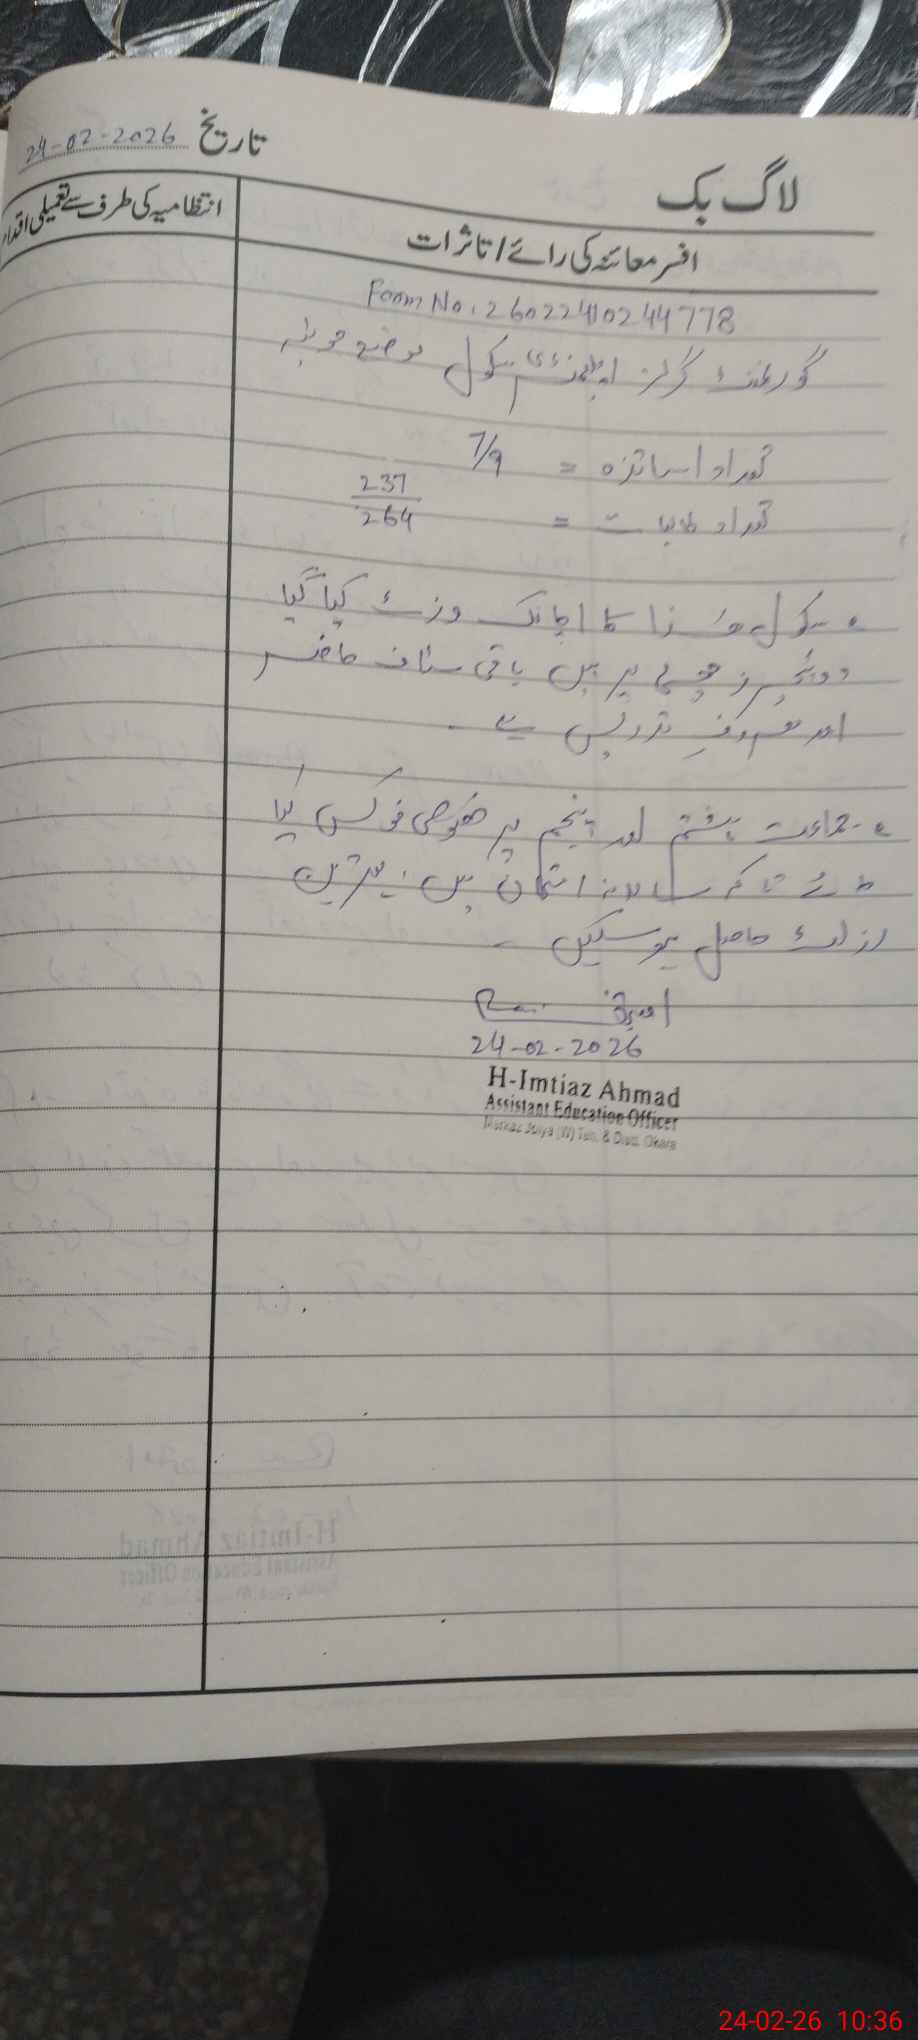 تاریخ 24-02-2026
لاگ بک
افسر معائنہ کی رائے / تاثرات
انتظامیہ کی طرف سے تعمیلی اقدام
Form No. 26022410244778
گورنمنٹ گرلز ایلیمنٹری سکول موضع جوئیہ
تعداد اساتذہ = 7/9
تعداد طالبات = 237/264
سکول ہذا کا اچانک وزٹ کیا گیا
دو ٹیچرز چھٹی پر ہیں باقی سٹاف حاضر
اور مصروفِ تدریس ہے۔
جماعت ہشتم اور پنجم پر خصوصی فوکس کیا
جائے تاکہ سالانہ امتحان میں بہترین
رزلٹ حاصل ہو سکیں۔
24-02-2026
H-Imtiaz Ahmad
Assistant Education Officer
Markaz Joiya (W) Teh. & Distt. Okara
24-02-26 10:36